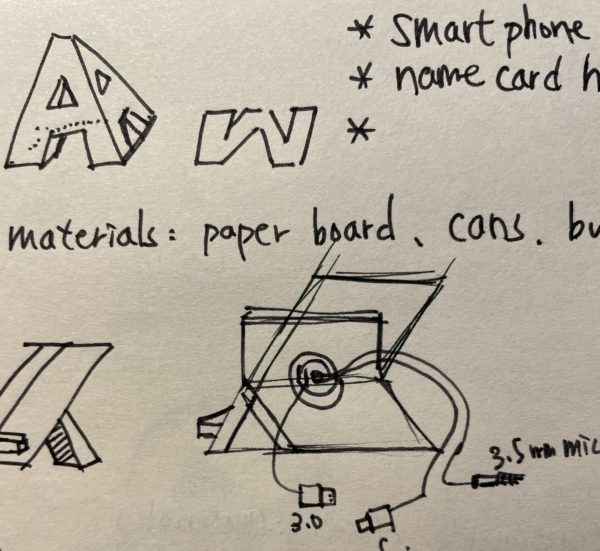 * smart phone
* name card h
*
A W
materials: paper board、cans、bu
3.5mm mic
3.0
C.